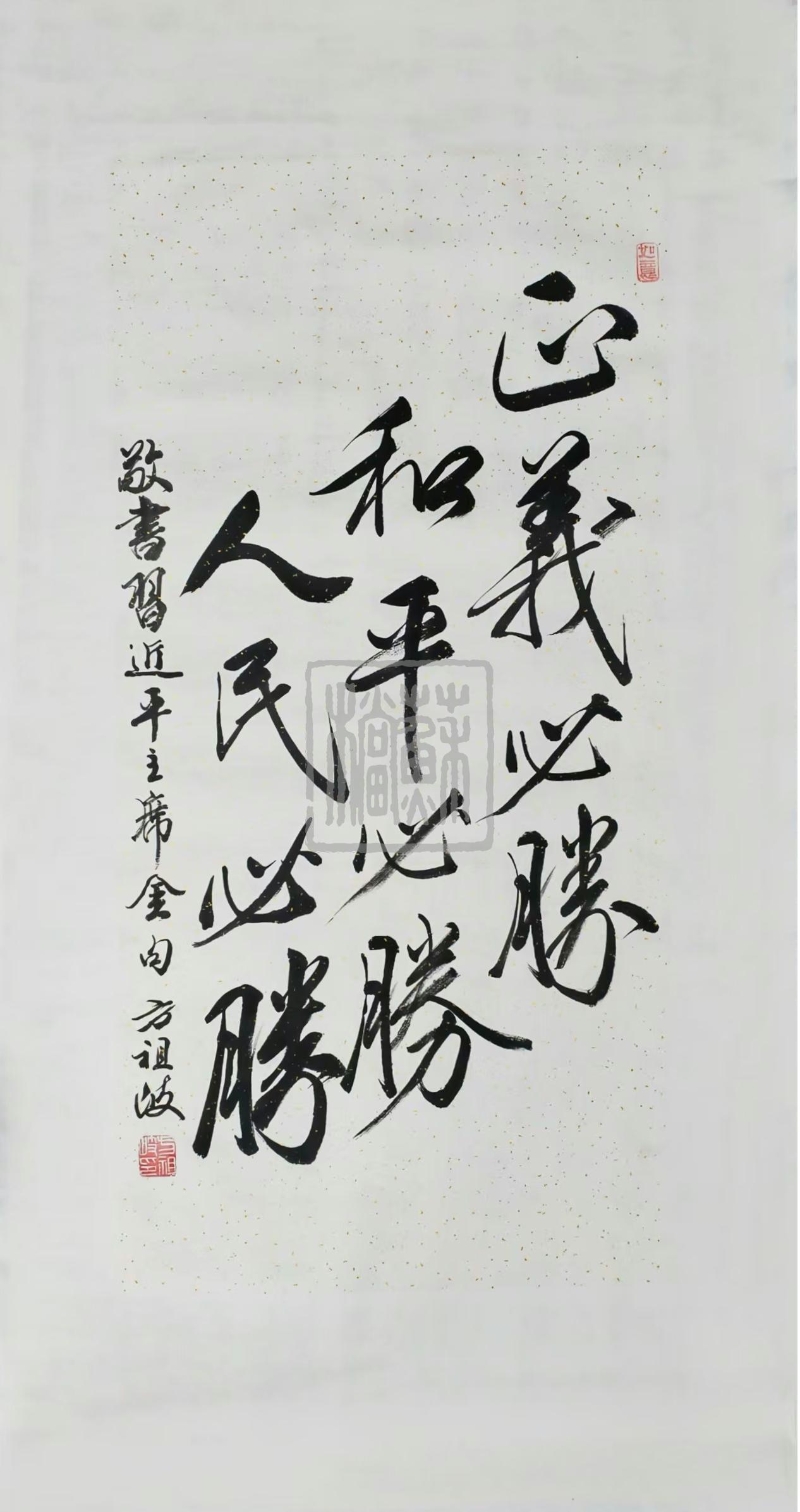 正義必勝
和平必勝
人民必勝
敬書習近平主席金句 方祖波
如意